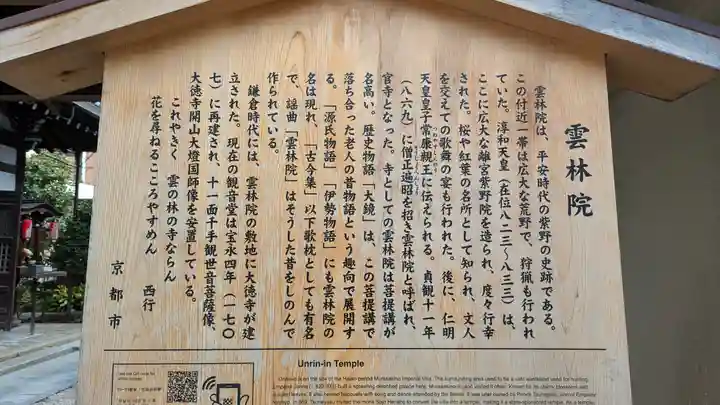 雲林院
雲林院は、平安時代の紫野の史跡である。
この付近一帯は広大な荒野で、狩猟も行われ
ていた。淳和天皇(在位八二三~八三三)は、
ここに広大な離宮紫野院を造られ、度々行幸
された。桜や紅葉の名所として知られ、文人
を交えての歌舞の宴も行われた。後に、仁明
天皇皇子常康親王に伝えられる。貞観十一年
(八六九)に僧正遍昭を招き雲林院と呼ばれ、
官寺となった。寺としての雲林院は菩提講で
名高い。歴史物語「大鏡」は、この菩提講で
落ち合った老人の昔物語という趣向で展開す
る。「源氏物語」「伊勢物語」にも雲林院の
名は現れ、「古今集」以下歌枕としても有名
で、謡曲「雲林院」はそうした昔をしのんで
作られている。
鎌倉時代には、雲林院の敷地に大徳寺が建
立された。現在の観音堂は宝永四年(一七〇
七)に再建され、十一面千手観世音菩薩像、
大徳寺開山大燈国師像を安置している。
これやきく 雲の林の寺ならん
花を尋ねるこころやすめん
西行
京都市
Unrin-in Temple